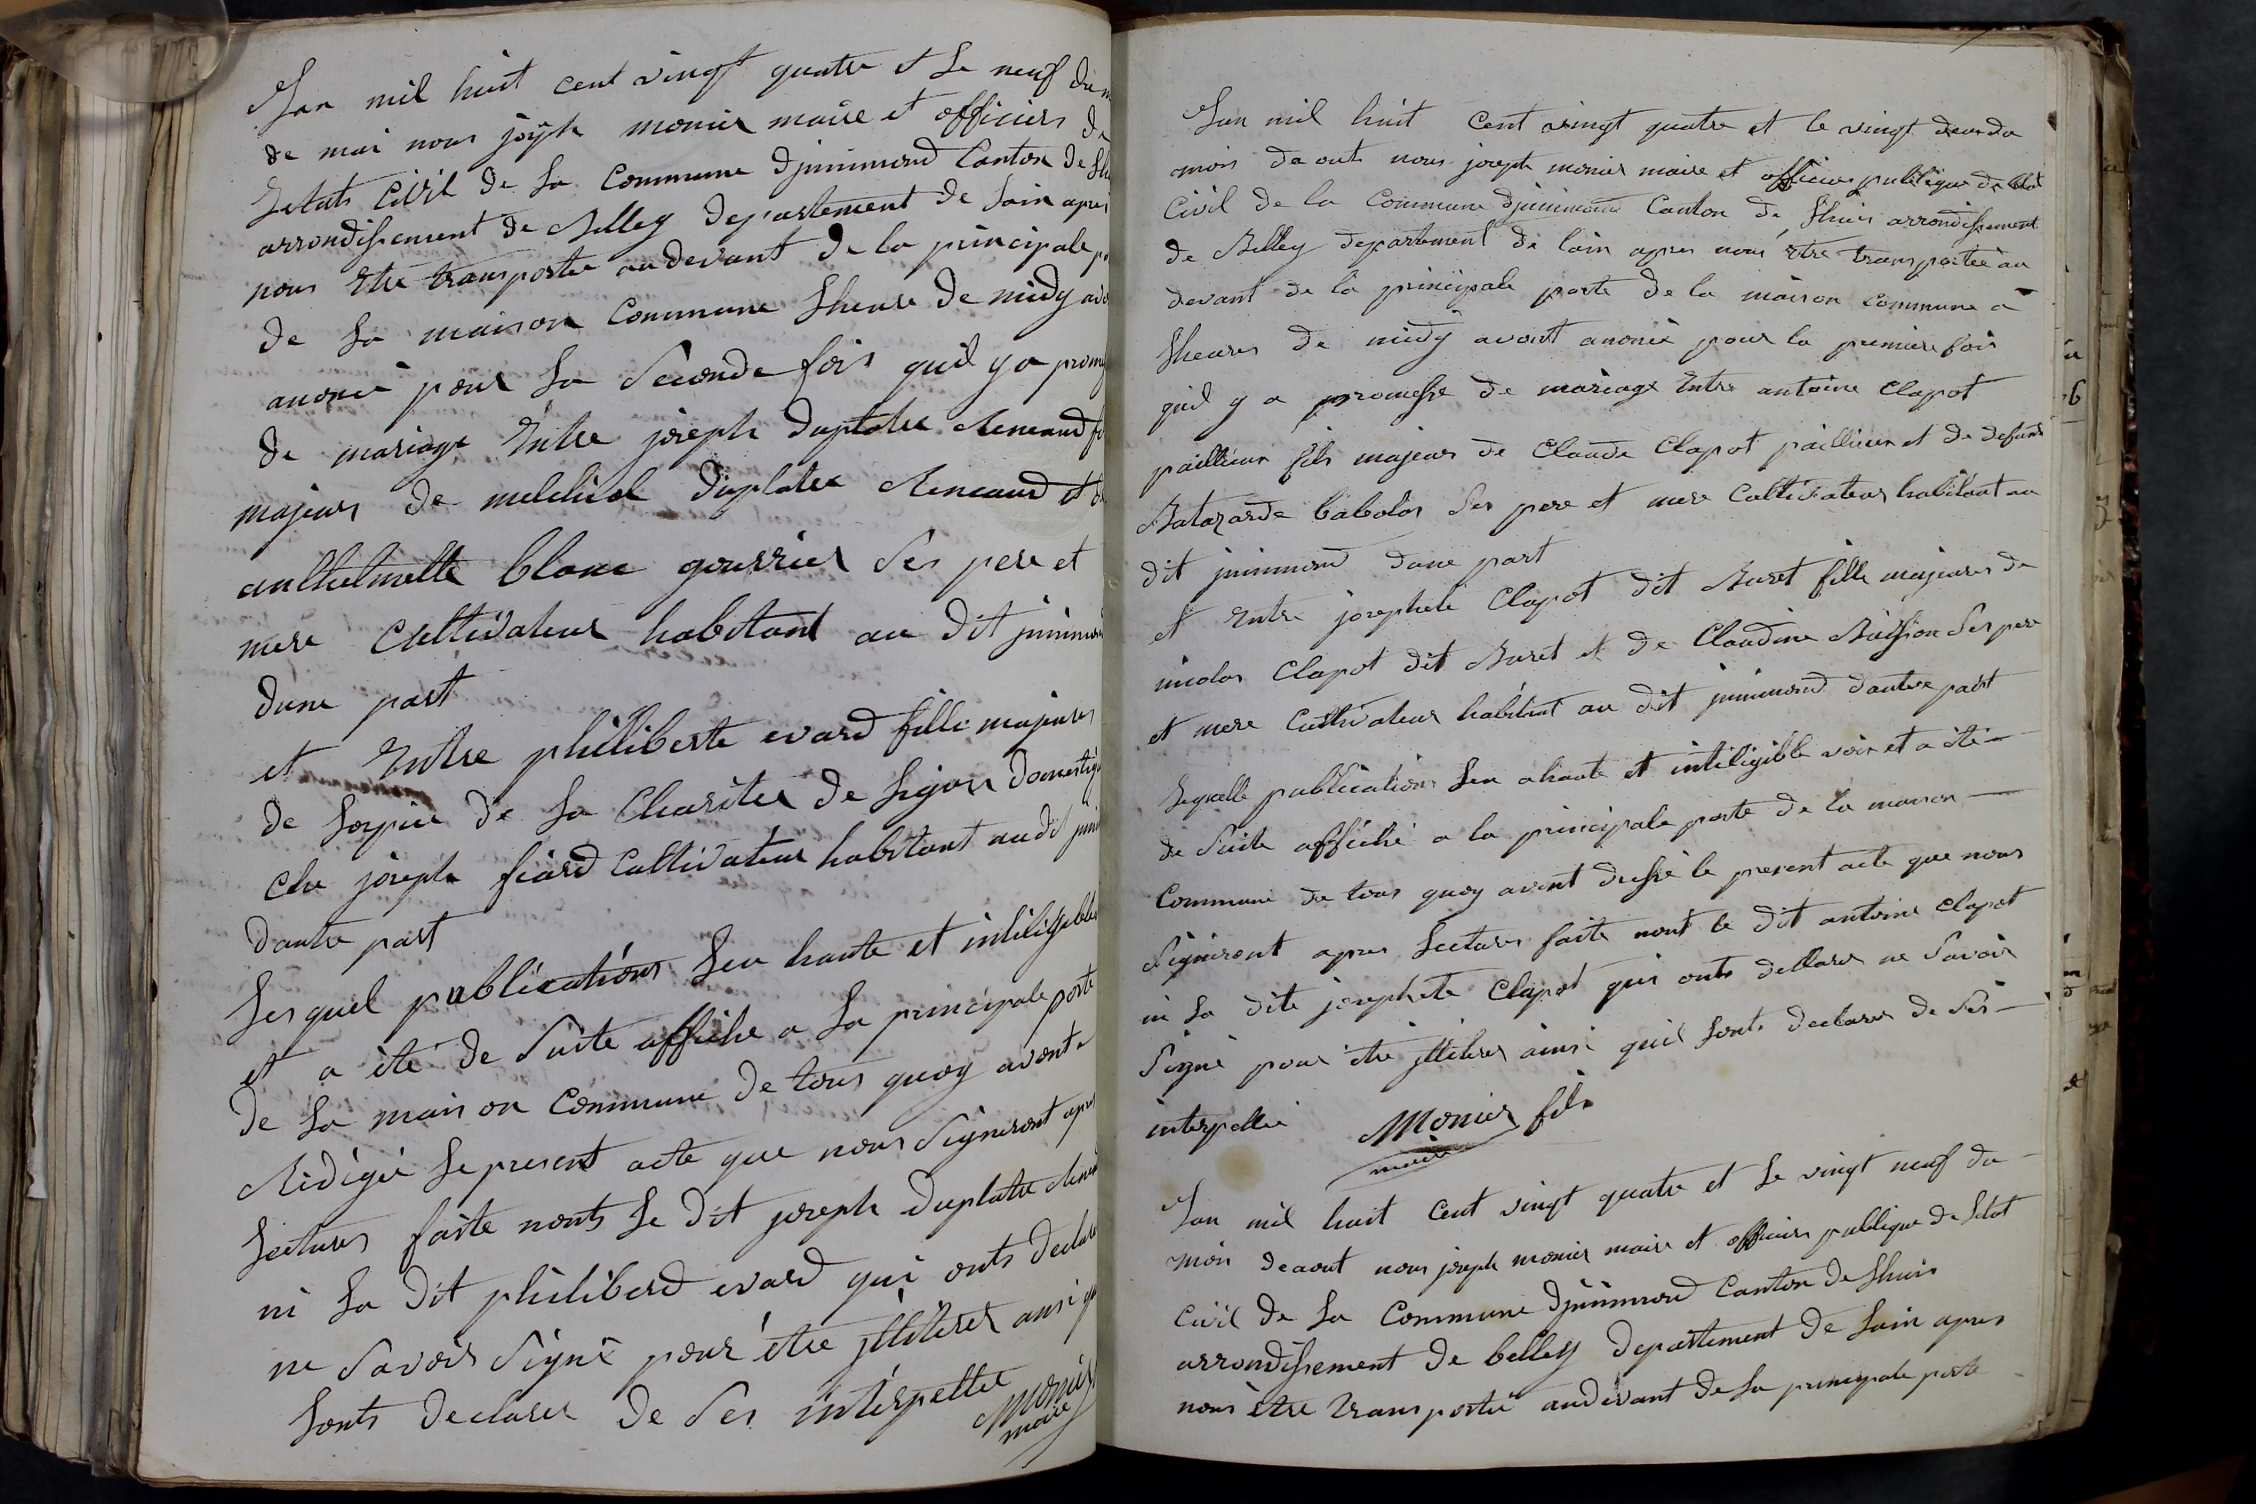 Lan mil huit cent vingt quatre et le neuf du m
de mai nous joseph monier maire et officiers de
Letats civil de La Commune djnnimond Canton de Lhu
arrondissement de Belley departement de Lain apres
nous Etre transportée au devant de la principale po
de La maison Commune Lheure de midy avo
anoncé pour La Seconde fois quil y a prome
de mariage Entre joseph Duplatre Renaud fi
majeurs de melchiol Duplatre Renaud et de
anthelmette blanc gourrier Ses pere et
mere Cultivateur habitant au Dit jnnimon
dune part
et Entre philiberte evard fille majeures
de Lospice de La Charitée de Lyon Domestiqu
che joseph fiard Cultivateur habitant audit jnni
dautre part
Lesquel publications Leu haute et inteligible
et a été de Suite affiche a La principale porte
de La maison Commune de tous quoy avont
Redigée Le present acte que nous Signeront apres
Lectures faite nonts Le Dit joseph Duplatre Renaud
ni La Dit philiberd evard qui onts Declare
ne Savoir Signé pour être jlliterer ansi qu
Lonts Declarer De Ses interpeller
Monier
maire
Lan mil huit Cent vingt quatre et le vingt deux du
mois de aout nous joseph monier maire et officier publique de letat
Civil de la Commune djnnimond Canton de Lhuis arrondissement
de Belley departement de lain apres nous Etre transportée au
devant de la principale porte de la maison commune a
Lheures de midy avont anoncé pour la premiere fois
quil y a promesse de mariage Entre antoine Clapot
paillieur fils majeur de Claude Clapot paillieur et de defunte
Batazarde babolas Ses pere et mere Cultivateur habitant au
dit jnnimond dune part
et Entre josephete Clapot dit Buret fille majeures de
nicolas Clapot dit Buret et de Claudine Buission Ses pere
et mere Cultivateur habitant au dit jnnimond dautre part
Lequelle publications Leu a haute et inteligible voix et a été
de Suite affiché a la principale porte de la maison
Commune de tous quoy avont dressé le present acte que nous
Signeront apres Lectures faite nont le dit antoine Clapot
ni La dite josephete Clapot qui onts dellarer ne Savoir
Signé pour être jlliterer ainsi quil Lonts declarer de Ses
interpellée Monier fils
maire
Lan mil huit Cent vingt quatre et Le vingt neuf du
mois de aout nous joseph monier maire et officier publique de Letat
Civil de La Commune djnnimond Canton de Lhuis
arrondissement de belley departement de Lain apres
nous être transportée audevant de La principale porte